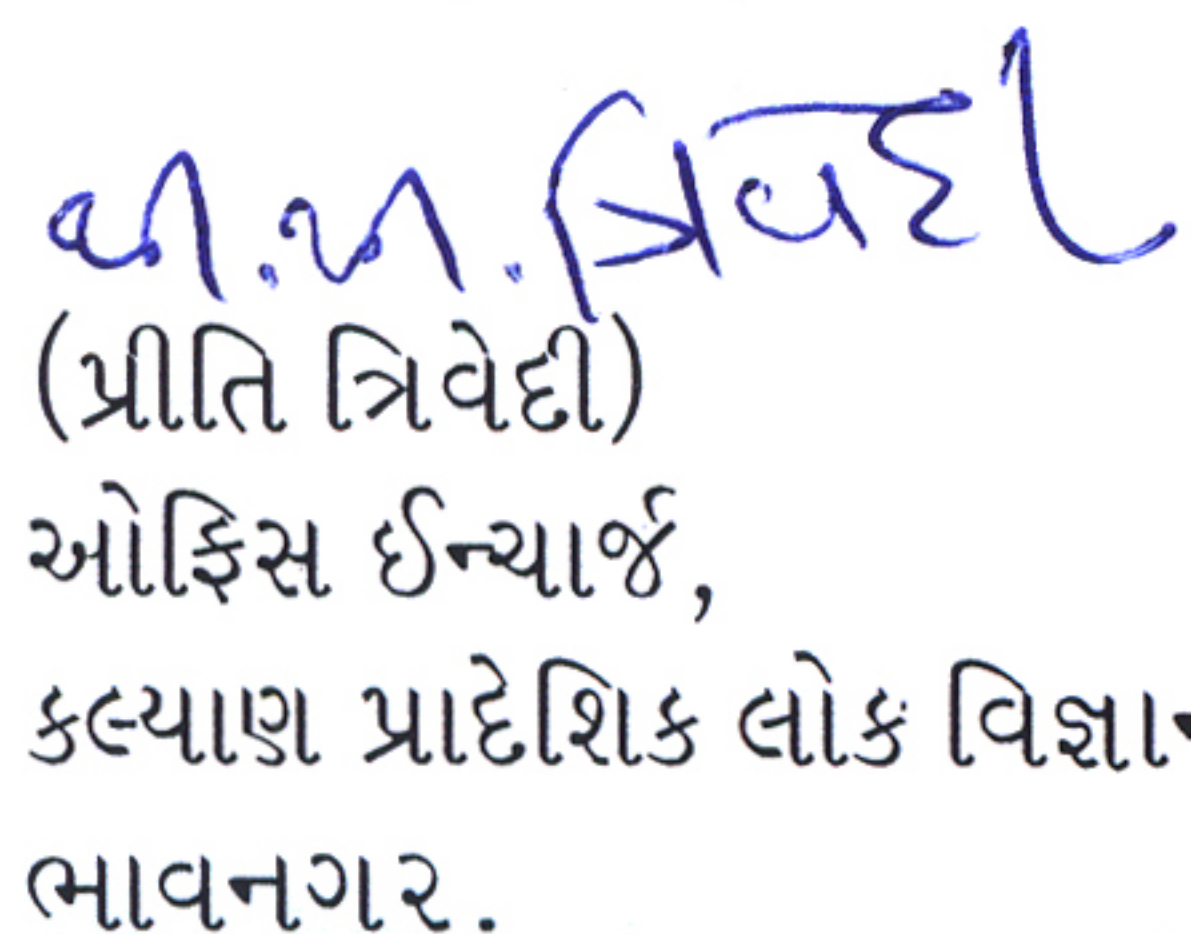 ત્રિવેદી
(પ્રીતિ ત્રિવેદી)
ઓફિસ ઈન્ચાર્જ,
કલ્યાણ પ્રાદેશિક લોક
ભાવનગર.